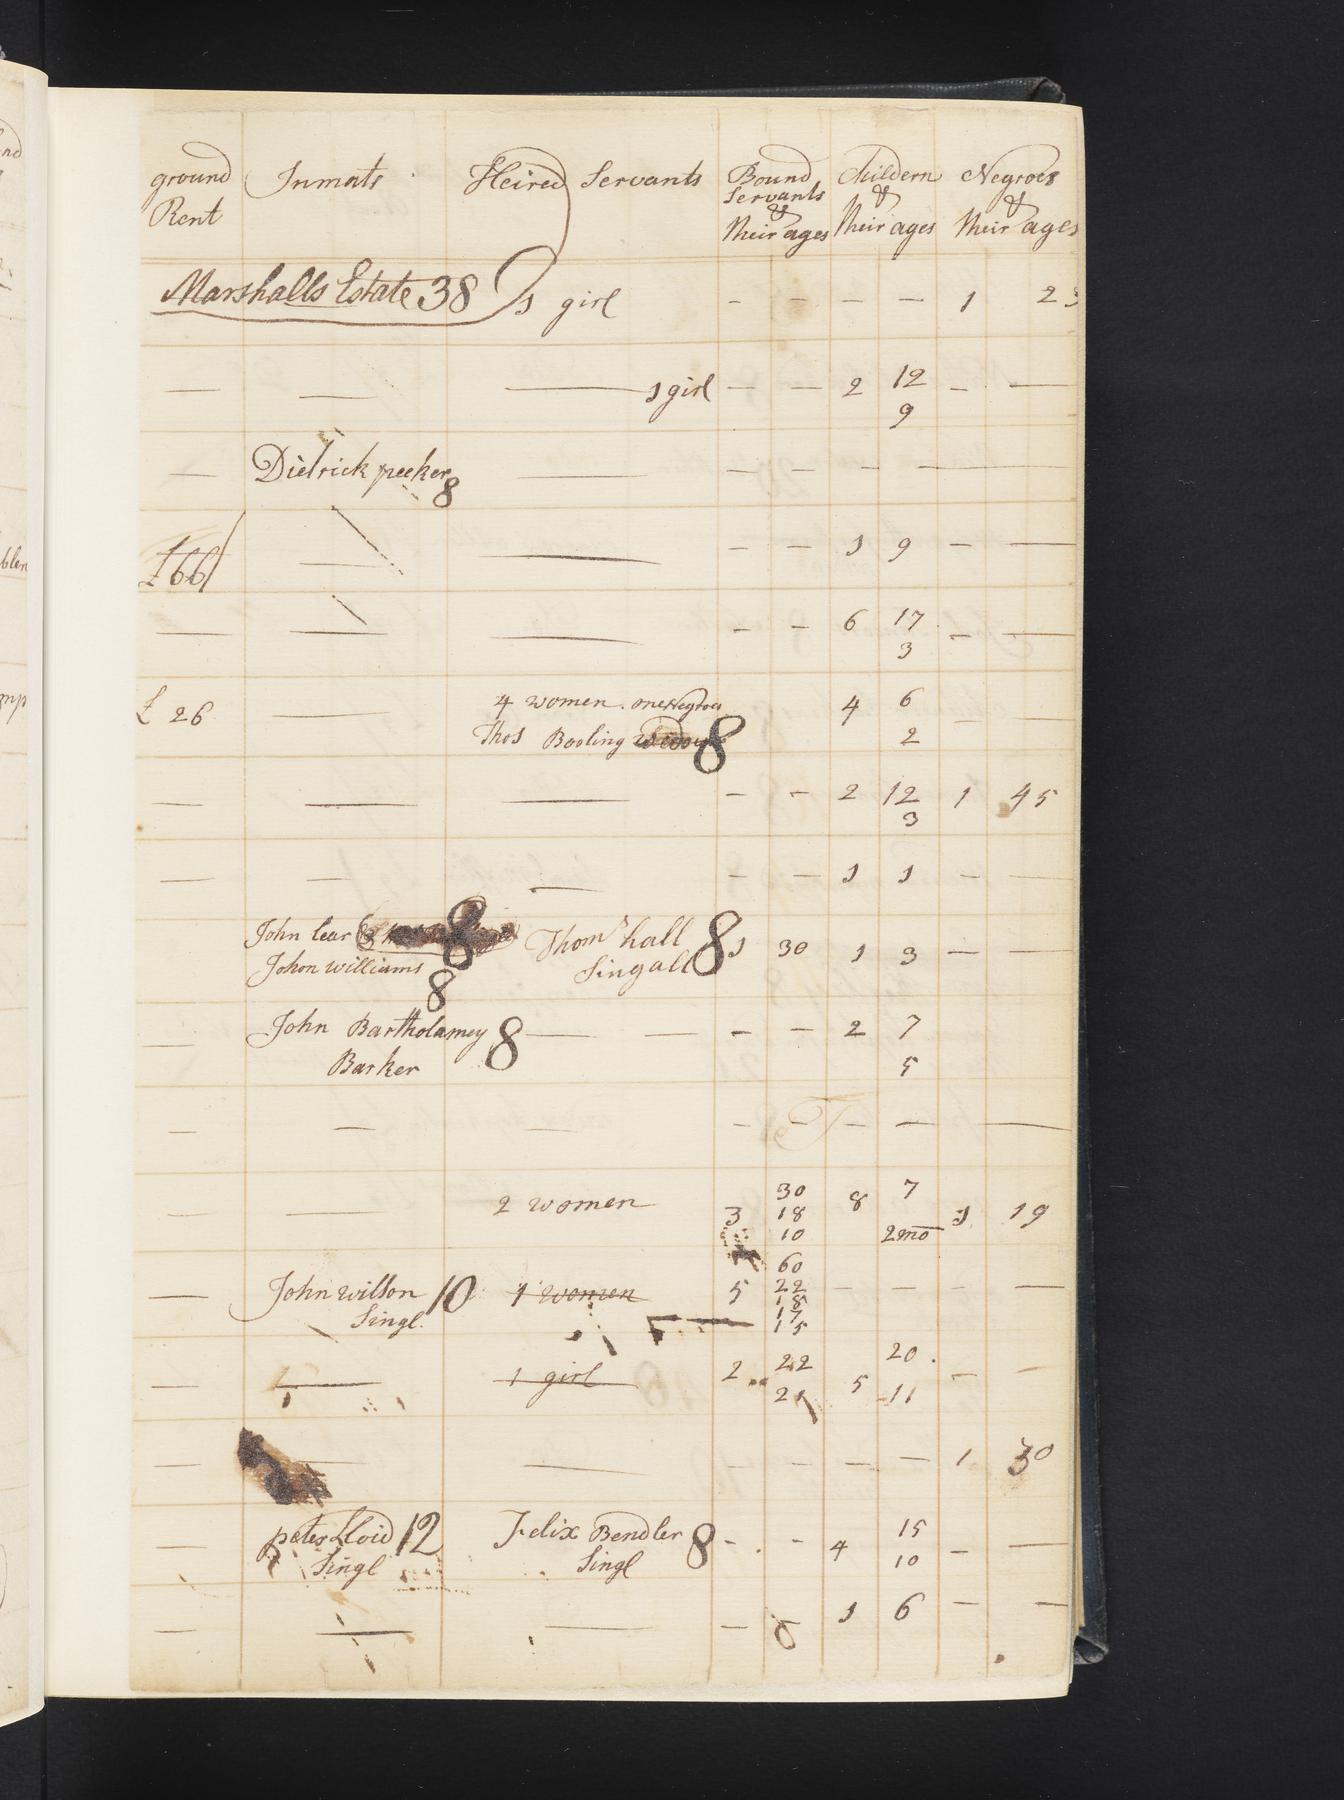 ground Inmats Heired Servants Bound Childern Negroes
Rent Servants & &
& Their ages Their ages
Their ages
Marshalls Estate 38 1 girl - - - — 1 23
— — — 1 girl - - 2 12 - —
9
— Dielrick peeker 8 — - - - —
£66/ — — - - 1 9 - —
— — — - - 6 17 - —
3
£ 26 — 4 women. one Negroe 4 6 - —
Thos Booling 8 2
— — — - - 2 12 1 45
3
— — — - - 1 1 - —
John lear 8 Thoms hall 8 1 30 1 3 — —
Johon williams 8 Singall
— John Bartholamey 8 — — - - 2 7
Barker 5
— — — - - - — —
— — 2 women 3 30 8 7 1 19
18
10 2mo
— John willson 10 1 women 5 60 - — - —
Singl. 22
18
17
15
— — 1 girl 2 22 5 20 - -
21 11
— — — - - — — 1 30
peter Lloid 12 Felix Bendler 8 - - 4 15 - —
Singl Singl 10
— — — — 1 6 — —